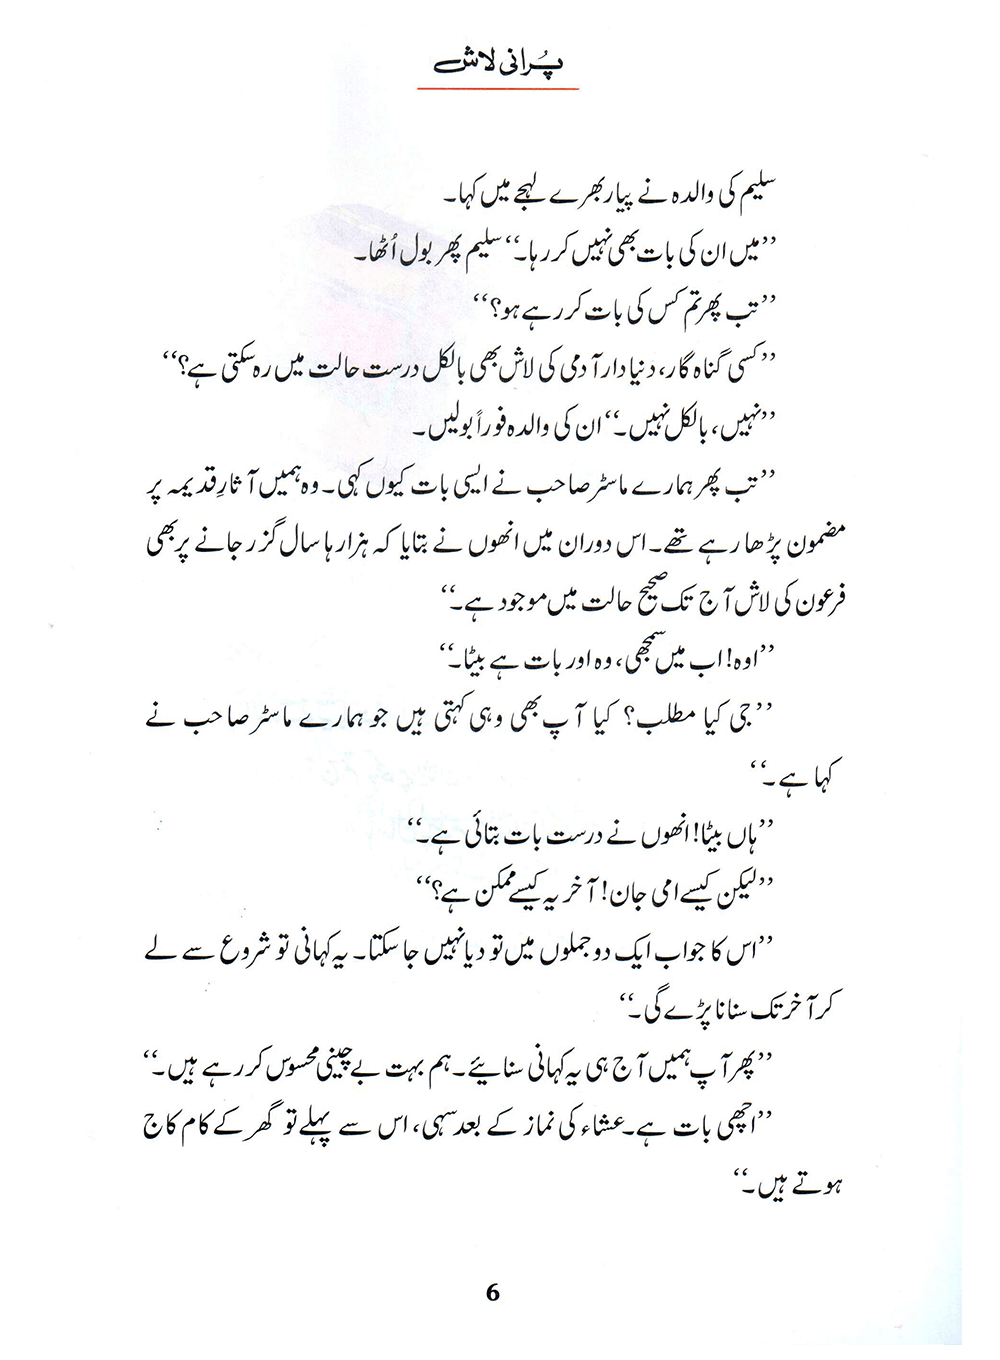 پُرانی لاش
سلیم کی والدہ نے پیار بھرے لہجے میں کہا۔
’’میں ان کی بات بھی نہیں کر رہا۔‘‘ سلیم پھر بول اُٹھا۔
’’تب پھر تم کس کی بات کر رہے ہو؟‘‘
’’کسی گناہ گار، دنیا دار آدمی کی لاش بھی بالکل درست حالت میں رہ سکتی ہے؟‘‘
’’نہیں، بالکل نہیں۔‘‘ ان کی والدہ فوراً بولیں۔
’’تب پھر ہمارے ماسٹر صاحب نے ایسی بات کیوں کہی۔ وہ ہمیں آثارِ قدیمہ پر
مضمون پڑھا رہے تھے۔ اس دوران میں انھوں نے بتایا کہ ہزارہا سال گزر جانے پر بھی
فرعون کی لاش آج تک صحیح حالت میں موجود ہے۔‘‘
’’اوہ! اب میں سمجھی، وہ اور بات ہے بیٹا۔‘‘
’’جی کیا مطلب؟ کیا آپ بھی وہی کہتی ہیں جو ہمارے ماسٹر صاحب نے
کہا ہے۔‘‘
’’ہاں بیٹا! انھوں نے درست بات بتائی ہے۔‘‘
’’لیکن کیسے امی جان! آخر یہ کیسے ممکن ہے؟‘‘
’’اس کا جواب ایک دو جملوں میں تو دیا نہیں جا سکتا۔ یہ کہانی تو شروع سے لے
کر آخر تک سنانا پڑے گی۔‘‘
’’پھر آپ ہمیں آج ہی یہ کہانی سنائیے۔ ہم بہت بے چینی محسوس کر رہے ہیں۔‘‘
’’اچھی بات ہے۔ عشاء کی نماز کے بعد سہی، اس سے پہلے تو گھر کے کام کاج
ہوتے ہیں۔‘‘
6